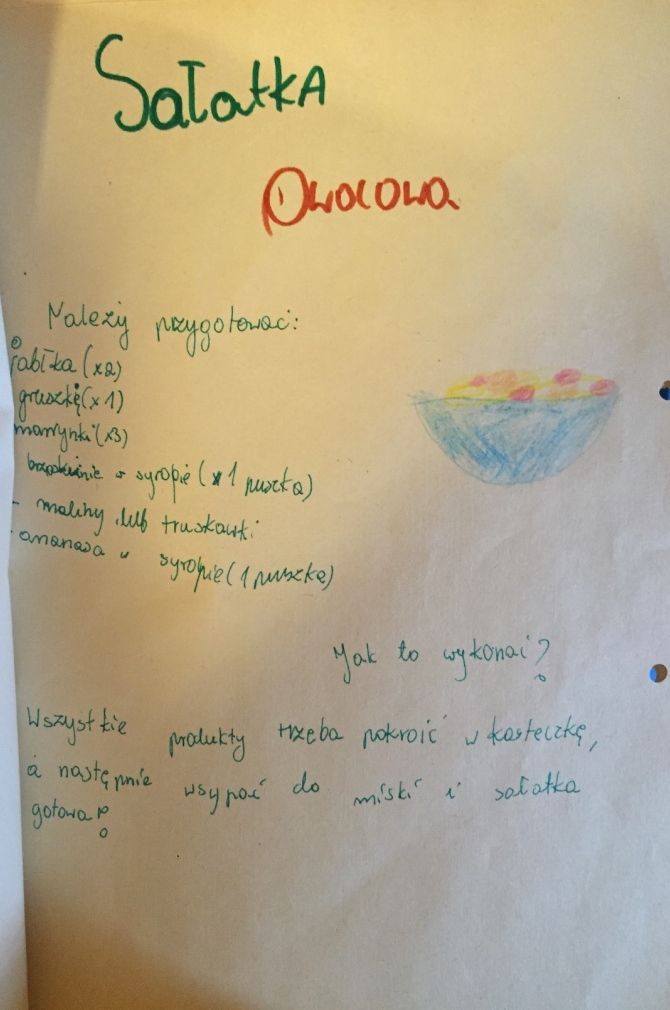 SałatkA
Owocowa
Należy przygotować:
jabłka (x2)
gruszkę (x1)
marynki (x3)
brzoskwinie w syropie (x 1 puszka)
- maliny lub truskawki
- ananasa w syropie (1 puszkę)
Jak to wykonać?
Wszystkie produkty trzeba pokroić w kosteczkę,
a następnie wsypać do miski i sałatka
gotowa!